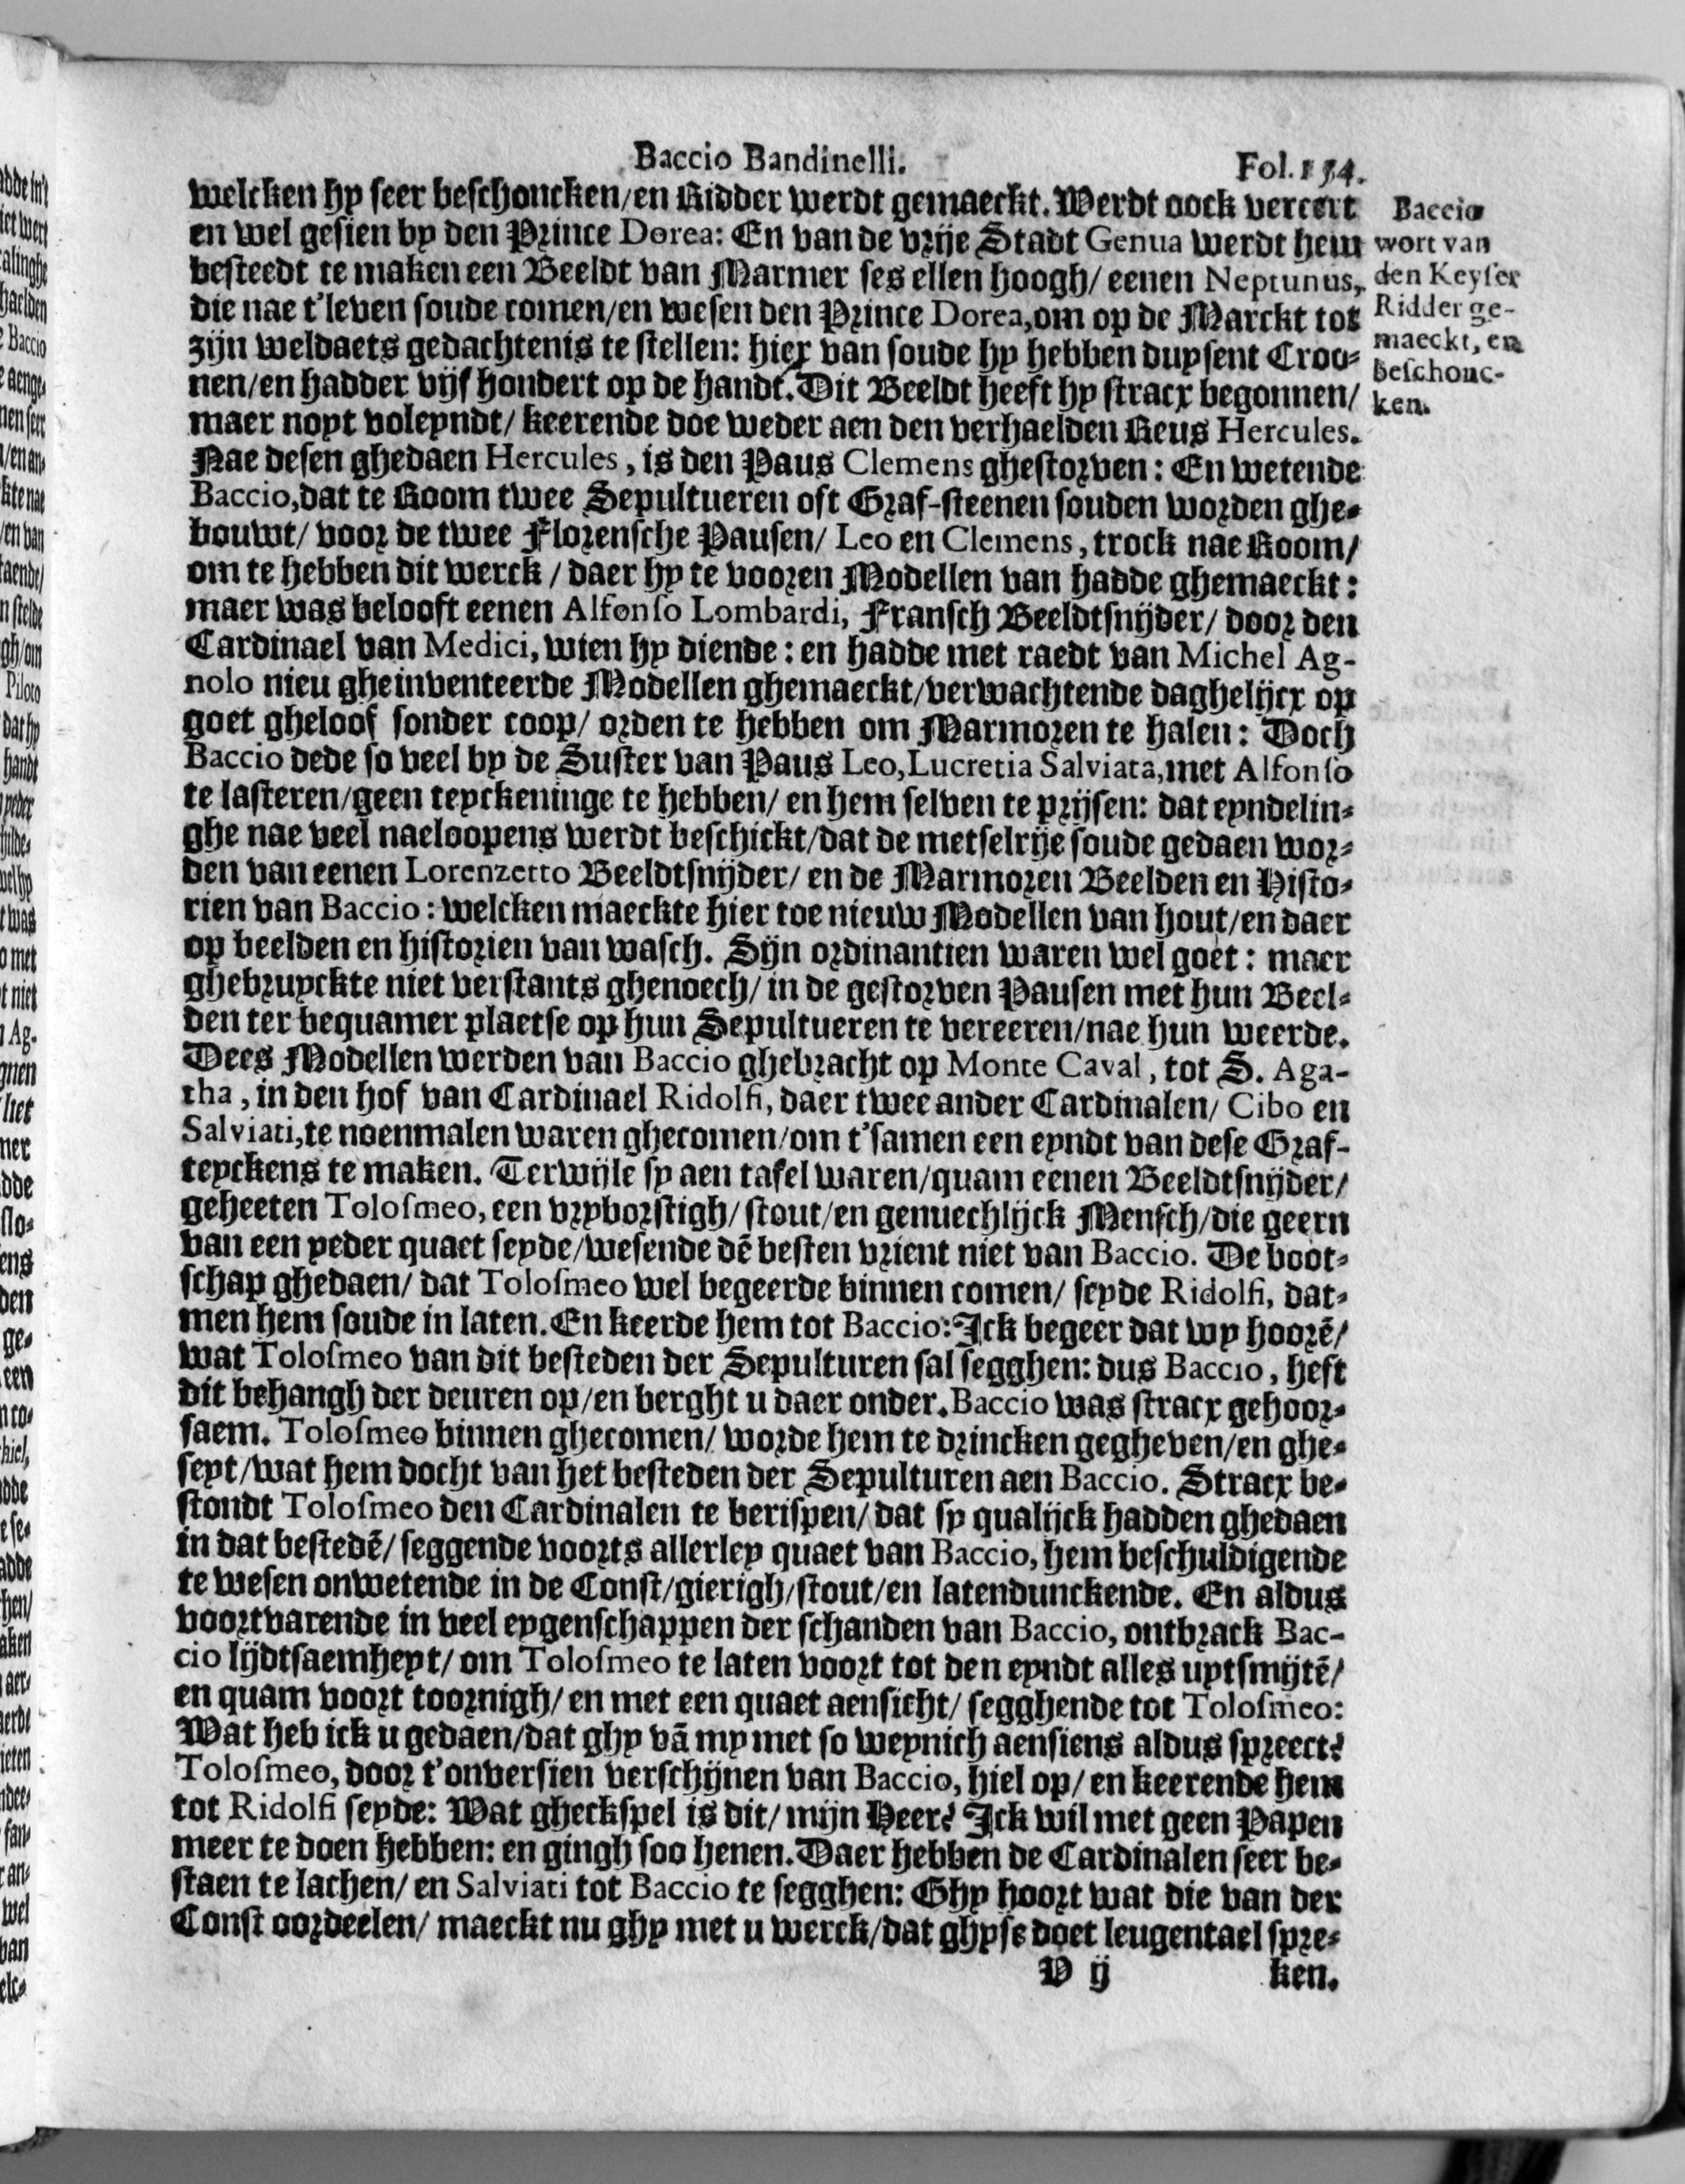 Baccio Bandinelli. Fol. 154.
welcken hy seer beschoncken/en Ridder werdt gemaeckt. Werdt oock vereert
en wel gesien by den Prince Dorea: En van de vrije Stadt Genua werdt hem
besteedt te maken een Beeldt van Marmer ses ellen hoogh/ eenen Neptunus,
die nae t'leven soude comen/en wesen den Prince Dorea,om op de Marckt tot
zijn weldaets gedachtenis te stellen: hier van soude hy hebben duysent Croo-
nen/en hadder vijf hondert op de handt. Dit Beeldt heeft hy stracx begonnen/
maer noyt voleyndt/ keerende doe weder aen den verhaelden Reus Hercules.
Nae desen ghedaen Hercules, is den Paus Clemens ghestorven: En wetende
Baccio,dat te Room twee Sepultueren oft Graf-steenen souden worden ghe-
bouwt/ voor de twee Florensche Pausen/ Leo en Clemens, trock nae Room/
om te hebben dit werck/ daer hy te vooren Modellen van hadde ghemaeckt:
maer was belooft eenen Alfonso Lombardi, Fransch Beeldtsnijder/ door den
Cardinael van Medici, wien hy diende: en hadde met raedt van Michel Ag-
nolo nieu gheinventeerde Modellen ghemaeckt/verwachtende daghelijcx op
goet gheloof sonder coop/ orden te hebben om Marmoren te halen: Doch
Baccio dede so veel by de Suster van Paus Leo,Lucretia Salviata,met Alfonso
te lasteren/geen teyckeninge te hebben/ en hem selven te prijsen: dat eyndelin-
ghe nae veel naeloopens werdt beschickt/dat de metselrije soude gedaen wor-
den van eenen Lorenzetto Beeldtsnijder/ en de Marmoren Beelden en Histo-
rien van Baccio: welcken maeckte hier toe nieuw Modellen van hout/en daer
op beelden en historien van wasch. Sijn ordinantien waren wel goet: maer
ghebruyckte niet verstants ghenoech/ in de gestorven Pausen met hun Beel-
den ter bequamer plaetse op hun Sepultueren te vereeren/nae hun weerde.
Dees Modellen werden van Baccio ghebracht op Monte Caval, tot S. Aga-
tha, in den hof van Cardinael Ridolfi, daer twee ander Cardinalen/ Cibo en
Salviati,te noenmalen waren ghecomen/om t'samen een eyndt van dese Graf-
teyckens te maken. Terwijle sy aen tafel waren/quam eenen Beeldtsnijder/
geheeten Tolosmeo, een vryborstigh/ stout/en genuechlijck Mensch/die geern
van een yeder quaet seyde/wesende dē besten vrient niet van Baccio. De boot-
schap ghedaen/ dat Tolosmeo wel begeerde binnen comen/ seyde Ridolfi, dat-
men hem soude in laten. En keerde hem tot Baccio: Ick begeer dat wy hoorē/
wat Tolosmeo van dit besteden der Sepulturen sal segghen: dus Baccio, heft
dit behangh der deuren op/en berght u daer onder. Baccio was stracx gehoor-
saem. Tolosmeo binnen ghecomen/ worde hem te drincken gegheven/en ghe-
seyt/wat hem docht van het besteden der Sepulturen aen Baccio. Stracx be-
stondt Tolosmeo den Cardinalen te berispen/ dat sy qualijck hadden ghedaen
in dat bestedē/ seggende voorts allerley quaet van Baccio, hem beschuldigende
te wesen onwetende in de Const/gierigh/stout/en latendunckende. En aldus
voortvarende in veel eygenschappen der schanden van Baccio, ontbrack Bac-
cio lijdtsaemheyt/ om Tolosmeo te laten voort tot den eyndt alles uytsmijtē/
en quam voort toornigh/ en met een quaet aensicht/ segghende tot Tolosmeo:
Wat heb ick u gedaen/dat ghy vā my met so weynich aensiens aldus spreect?
Tolosmeo, door t'onversien verschijnen van Baccio, hiel op/ en keerende hem
tot Ridolfi seyde: Wat gheckspel is dit/ mijn Heer? Ick wil met geen Papen
meer te doen hebben: en gingh soo henen. Daer hebben de Cardinalen seer be-
staen te lachen/ en Salviati tot Baccio te segghen: Ghy hoort wat die van der
Const oordeelen/ maeckt nu ghy met u werck/dat ghyse doet leugentael spre-
V ij ken.
Baccio
wort van
den Keyser
Ridder ge-
maeckt, en
beschonc-
ken.